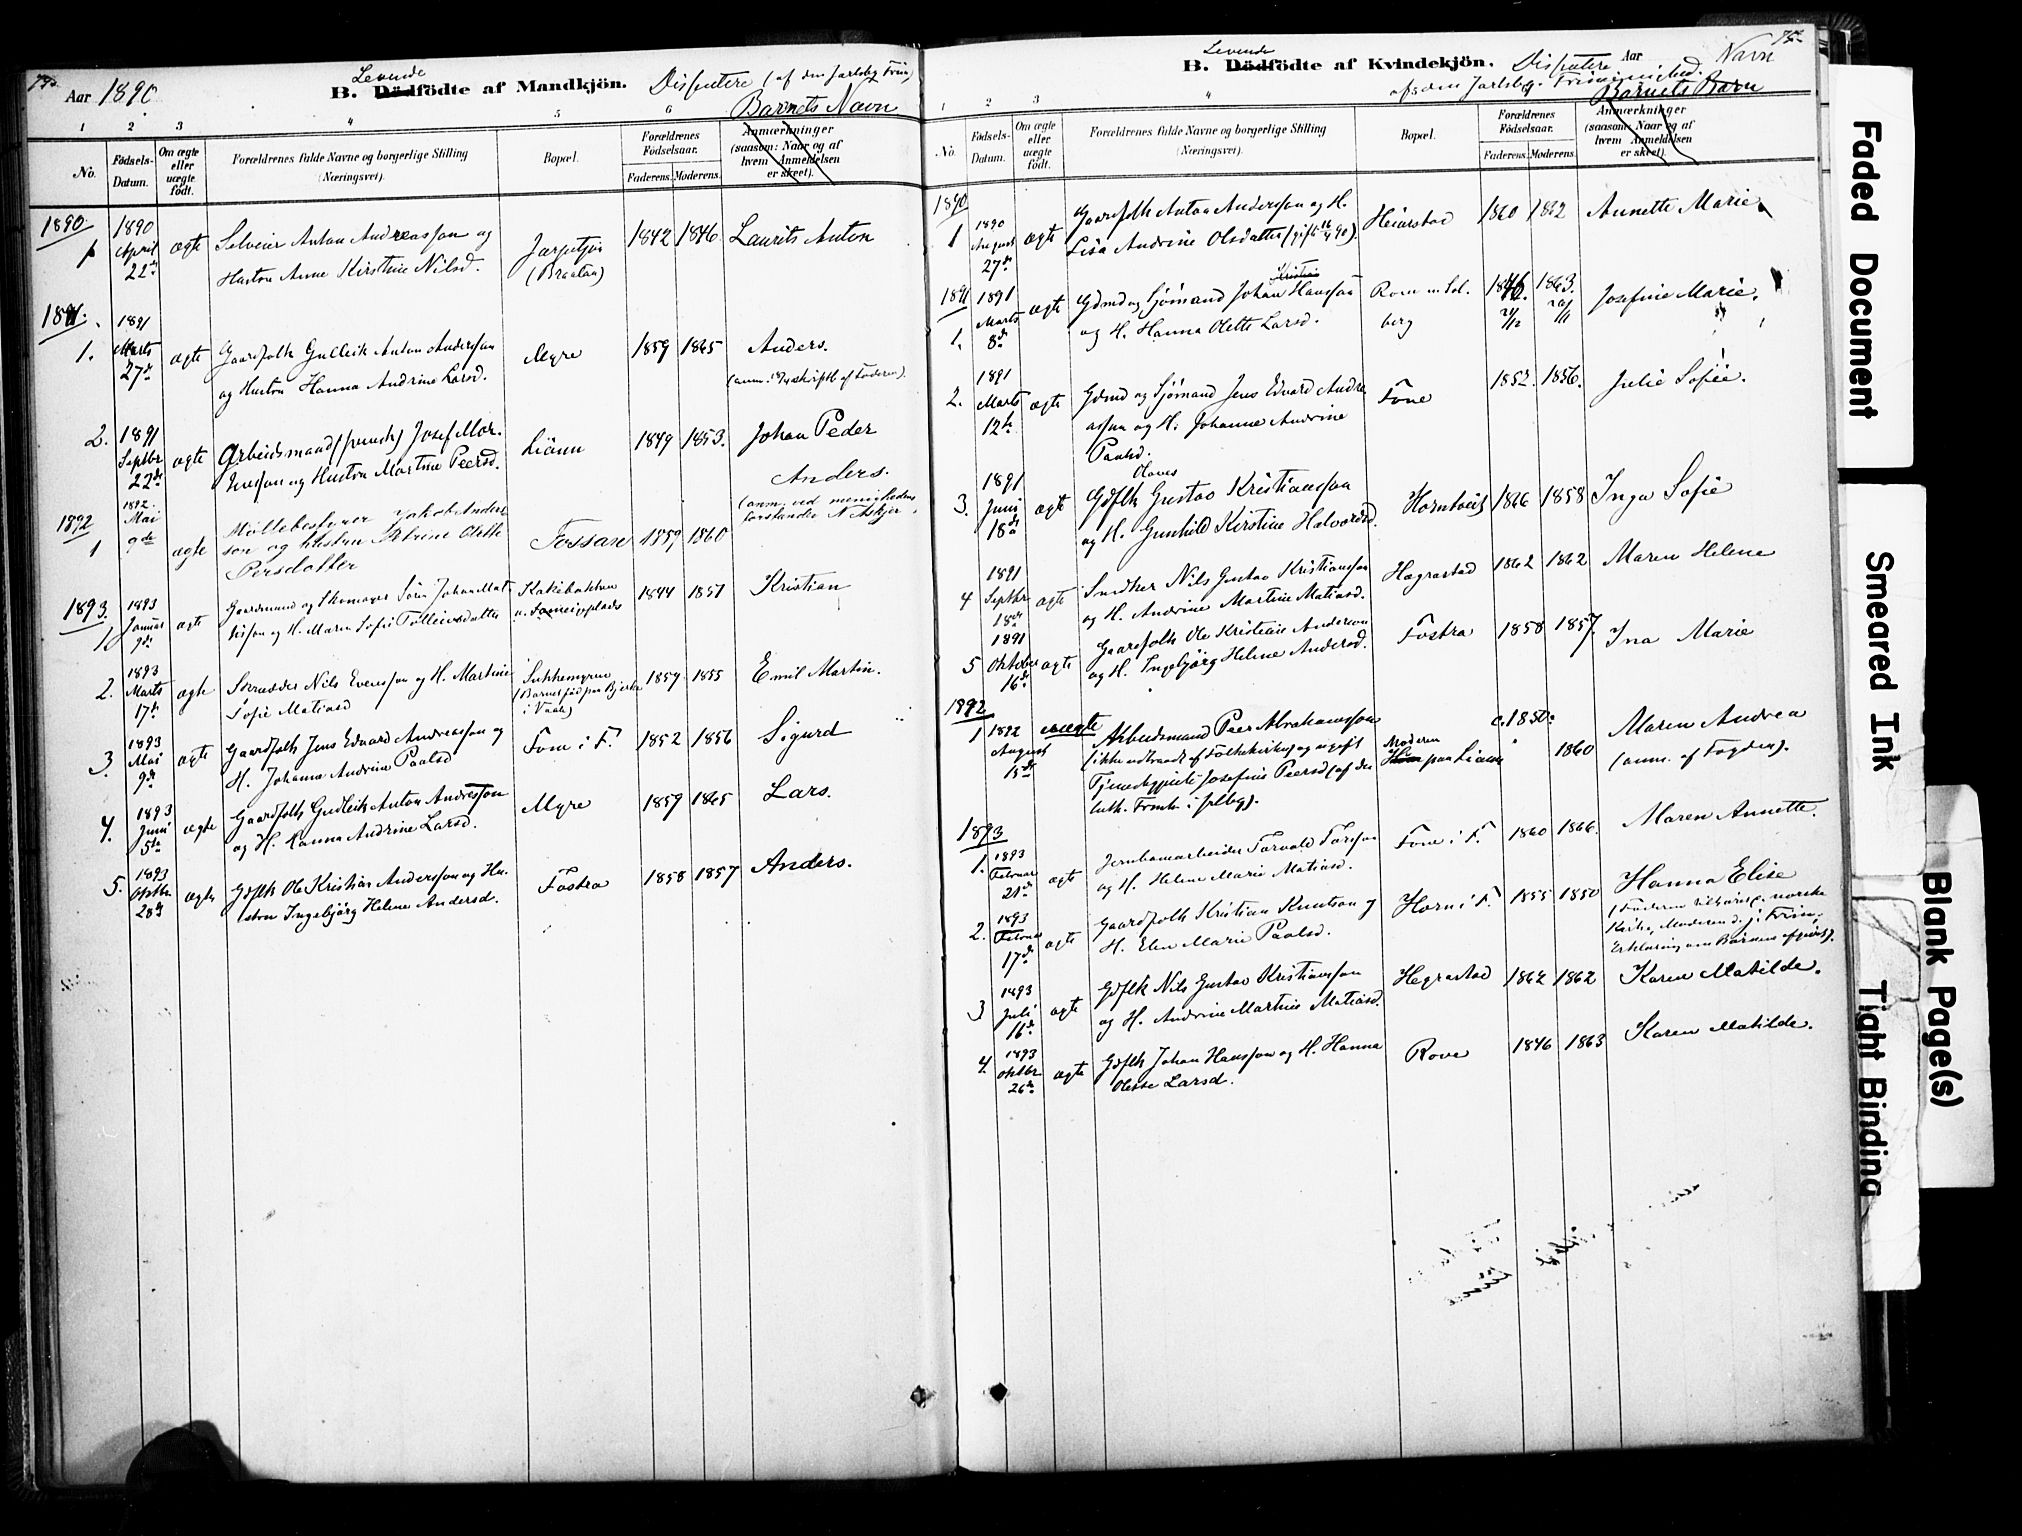 Aar 1890
Levende
B. Dödfödte af Mandkjön.
Barnets Navn
1 2 3 4 5 6
No.
Födsels-Datum.
Om ægte eller uægte født.
Forældrenes fulde Navne og borgerlige Stilling (Næringsvei).
Bopæl.
Forældrenes Födselsaar.
Faderens. Moderens.
Anmærkninger (saasom: Naar og af hvem Anmeldelsen er skeet).
1890
1890 April 22de ægte
Anton Andreassen og
Hustru Anne Kirstine Nilsd.
(Braatan)
1842 1846 Laurits Anton
1891
1. 1891 Marts 27de ægte
Gaardfolk Gulleik Anton Anderssen
og Hustru Hanna Andrine Larsd.
Myre
1859 1865 Anders.
2. 1891 Septbr 22de ægte
Arbeidsmand Josef Mor-
tensen og Hustru Martine Peersd.
Liann
1849 1853. Johan Peder
1892
1 1892 Mai 9de ægte
Møllebestyrer Jakob Anders
sen og Hustru Olette
Persdatter
Fossan
1859 1860
Anders.
(anm. ved menighedens
forstander N. Askjer.
1893.
1 1893 Januar 9de ægte
Gaardmand og Skomager Sören Johan Mat
isen og H. Maren Sofie Tolleivsdatter
1844 1851 Kristian
2. 1893 Marts 17de ægte
Skrædder Nils Evensen og H. Martine
Sofie Matiasd
Sukkemyren
1859 1855 Emil Martin.
3. 1893 Mai 9de ægte
Gaardfolk Jens Edvard Andreassen og
H. Johanne Andrine Paalsd
Fon i F.
1852 1856 Sigurd
4. 1893 Juni 5te ægte
Gaardfolk Gulleik Anton Andressen
og H. Hanna Andrine Larsd.
Myre
1859 1865 Lars.
5. 1893 Oktbr. 28de ægte
Gdflk Ole Kristian Anderssen og Hu-
stru Ingebjörg Helene Andersd.
Fostra
1858 1857 Anders.
Levende
B. Dödfödte af Kvindekjön.
Aar
Navn
Barnets Barn
1 2 3 4
No.
Födsels-Datum.
Om ægte eller uægte født.
Forældrenes fulde Navne og borgerlige Stilling (Næringsvei).
Bopæl.
Forældrenes Födselsaar.
Faderens. Moderens.
Anmærkninger (saasom: Naar og af hvem Anmeldelsen er skeet).
1890
1 1890 August 27de ægte
Gaardfolk Anton Anderssen og H.
Lisa Andrine Olsdatter
Heiarstad
1860 1862 Annette Marie
1891
1. 1891 Marts 8de ægte
Kristian
Gdmd og Sjömand Johan Hanssen
og H. Hanna Olette Larsd.
1846. 1863. Josefine Marie.
2. 1891 Marts 12te ægte
Gdmd og Sjömand Jens Edvard Andre
assen og H. Johanne Andrine
Paalsd.
Fone
1852. 1856. Julie Sofie.
3. 1891 Juni 18de ægte
Olaves
Gdflk Gustav Kristianssen
og H. Gunhild Kirstine Halvorsd.
1866 1858 Inga Sofie
4 1891 Septbr 18de ægte
Snedker Nils Gustav Kristianssen
og H. Andrine Martine Matiasd.
Hægrastad
1862 1862 Maren Helene
5 1891 Oktober 16de ægte
Gaardfolk Ole Kristian Andersen
og H. Ingebjörg Helene Andersd.
Fostra
1858 1857. Ina Marie
1892
1 1892 August 15de uægte
Arbeidsmand Peer Abrahamssen
(ikke udtraadt af Folkekirken og ugift
Tjenestepige Josefine Peersd (af den
luth. Frimh. i Jarlbg).
Moderen
Hjem paa Liann
c. 1850. 1860
Maren Andrea
(anm. af Fogden).
1893
1. 1893 Februar 21de ægte
Jernbanearbeider Torvald Torssen
og H. Helene Marie Matiasd.
Fon i F.
1860 1866. Maren Annette.
2. 1893 Februar 17de ægte
Gaardfolk Kristian Knutsen og
H. Elen Marie Paalsd.
Horn i F.
1855 1850 Hanna Elise
3 1893 Juli 16de ægte
Gdflk Nils Gustav Kristianssen
og H. Andrine Martine Matiasd.
Hegrastad
1862 1862 Karen Matilde.
4. 1893 Oktbr 26de ægte
Gdflk Johan Hanssen og H. Hanna
Olette Larsd.
Rove
1846 1863 Karen Matilde.
Faded Document
Smeared Ink
Blank Page(s)
Tight Binding